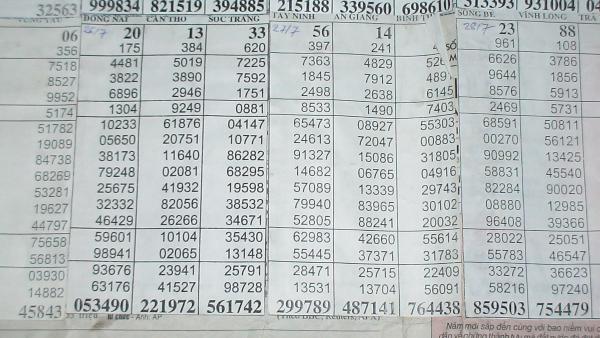 32563 999834 821519 394885 215188 339560 698610 313393 931004
ĐỒNG NAI CẦN THƠ SÓC TRĂNG TÂY NINH AN GIANG BÌNH SÔNG BÉ VĨNH LONG TRÀ
06 26/7 20 13 33 27/7 56 14 28/7 23 88
356 175 384 620 397 241 961 108
7518 4481 5019 7225 7363 4829 6626 3786
8527 3822 3890 7592 1845 7912 489 9644 1856
9952 6896 2946 1751 2498 2638 6145 8576 5913
5174 1304 9249 0881 8533 1490 7403 2469 5731
51782 10233 61876 04147 65473 08927 55303 68591 50811
19089 05650 20751 10771 24613 72047 00883 00270 56121
84738 38173 11640 86282 91327 15086 31805 90992 13425
68269 79248 02081 68295 14682 06765 04916 58831 45540
53281 25675 41932 19598 57089 13339 29743 82284 90020
19627 32332 82056 38532 79940 83965 30102 08880 12985
44797 46429 26266 34671 52805 88241 20032 96408 39366
75658 59601 10104 35430 62983 42660 55614 28022 25051
56813 98941 02065 13148 55445 37371 31783 55783 46547
03930 93676 23941 25791 28471 25715 22409 33272 36623
14882 63176 41527 98728 13531 13704 56091 58216 97240
45843 053490 221972 561742 299789 487141 764438 859503 754479
Năm mới sắp đến cùng với bao niềm vui